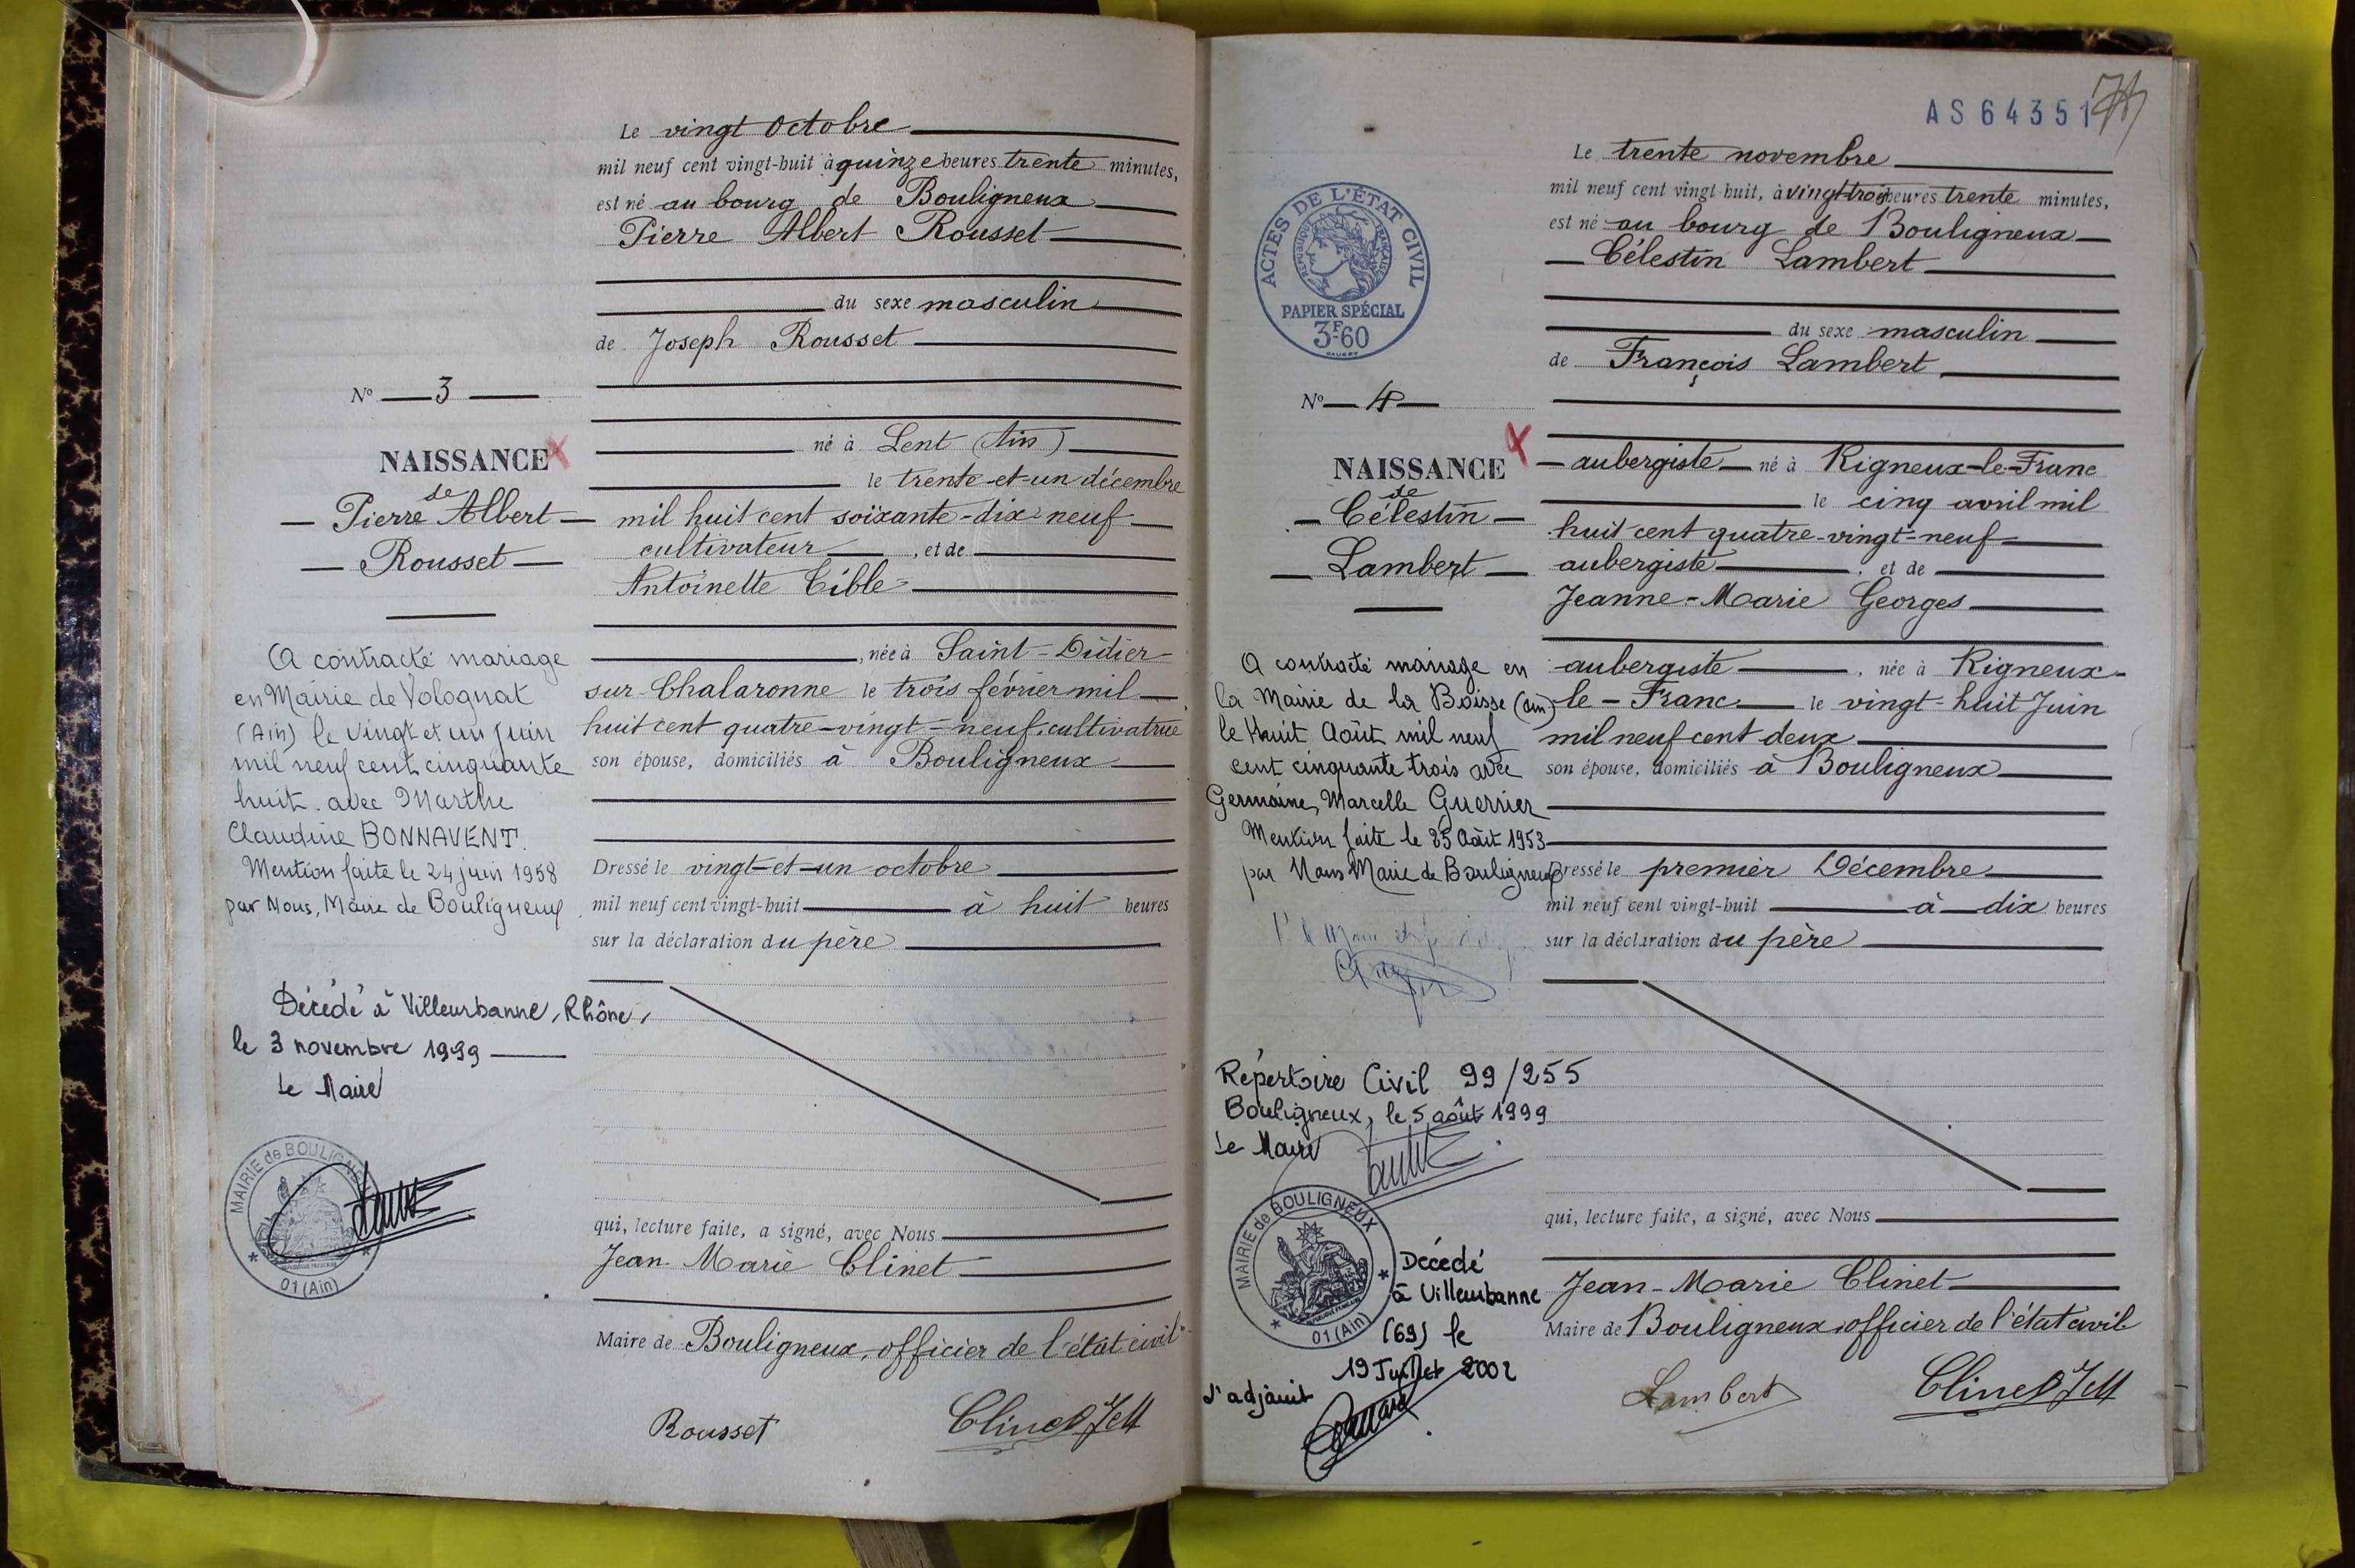 Le vingt octobre
mil neuf cent vingt-huit à quinze heures trente minutes,
est né au bourg de Bouligneux
Pierre Albert Rousset
du sexe masculin
de Joseph Rousset
né à Lent (Ain)
le trente-et-un décembre
mil huit cent soixante-dix-neuf
cultivateur, et de
Antoinette Cible
, née à Saint-Didier-
sur-Chalaronne le trois février mil
huit cent quatre-vingt-neuf, cultivatrice
son épouse, domiciliés à Bouligneux
Dressé le vingt-et-un octobre
mil neuf cent vingt-huit à huit heures
sur la déclaration du père
qui, lecture faite, a signé, avec Nous
Jean Marie Clinet
Maire de Bouligneux, officier de l'état civil
Rousset Clinet JM
N° 3
NAISSANCE
de
Pierre Albert
Rousset
A contracté mariage
en Mairie de Volognat
(Ain) le vingt et un juin
mil neuf cent cinquante
huit. avec Marthe
Claudine BONNAVENT.
Mention faite le 24 juin 1958
par Nous, Maire de Bouligneux
Décédé à Villeurbanne, Rhône,
le 3 novembre 1999
Le Maire
MAIRIE de BOULIGNEUX
01 (Ain)
AS 64351
Le trente novembre
mil neuf cent vingt huit, à vingt-trois heures trente minutes,
est né au bourg de Bouligneux
Célestin Lambert
du sexe masculin
de François Lambert
aubergiste né à Rigneux-le-Franc
le cinq avril mil
huit cent quatre-vingt-neuf
aubergiste, et de
Jeanne-Marie Georges
aubergiste, née à Rigneux-
le-Franc le vingt-huit Juin
mil neuf cent deux
son épouse, domiciliés à Bouligneux
Dressé le premier Décembre
mil neuf cent vingt-huit à dix heures
sur la déclaration du père
qui, lecture faite, a signé, avec Nous
Jean-Marie Clinet
Maire de Bouligneux, officier de l'état civil
Lambert Clinet JM
ACTES DE L'ÉTAT CIVIL
RÉPUBLIQUE FRANÇAISE
PAPIER SPÉCIAL
3F60
N° 4
NAISSANCE
de
Célestin
Lambert
A contracté mariage en
la Mairie de la Boisse (Ain)
le Huit Août mil neuf
cent cinquante trois avec
Germaine, Marcelle Guerrier
Mention faite le 25 Août 1953
par Nous Maire de Bouligneux
Répertoire Civil 99/255
Bouligneux, le 5 août 1999
Le Maire
MAIRIE de BOULIGNEUX
01 (Ain)
Décédé
à Villeurbanne
(69) le
19 Juillet 2002
L'adjoint